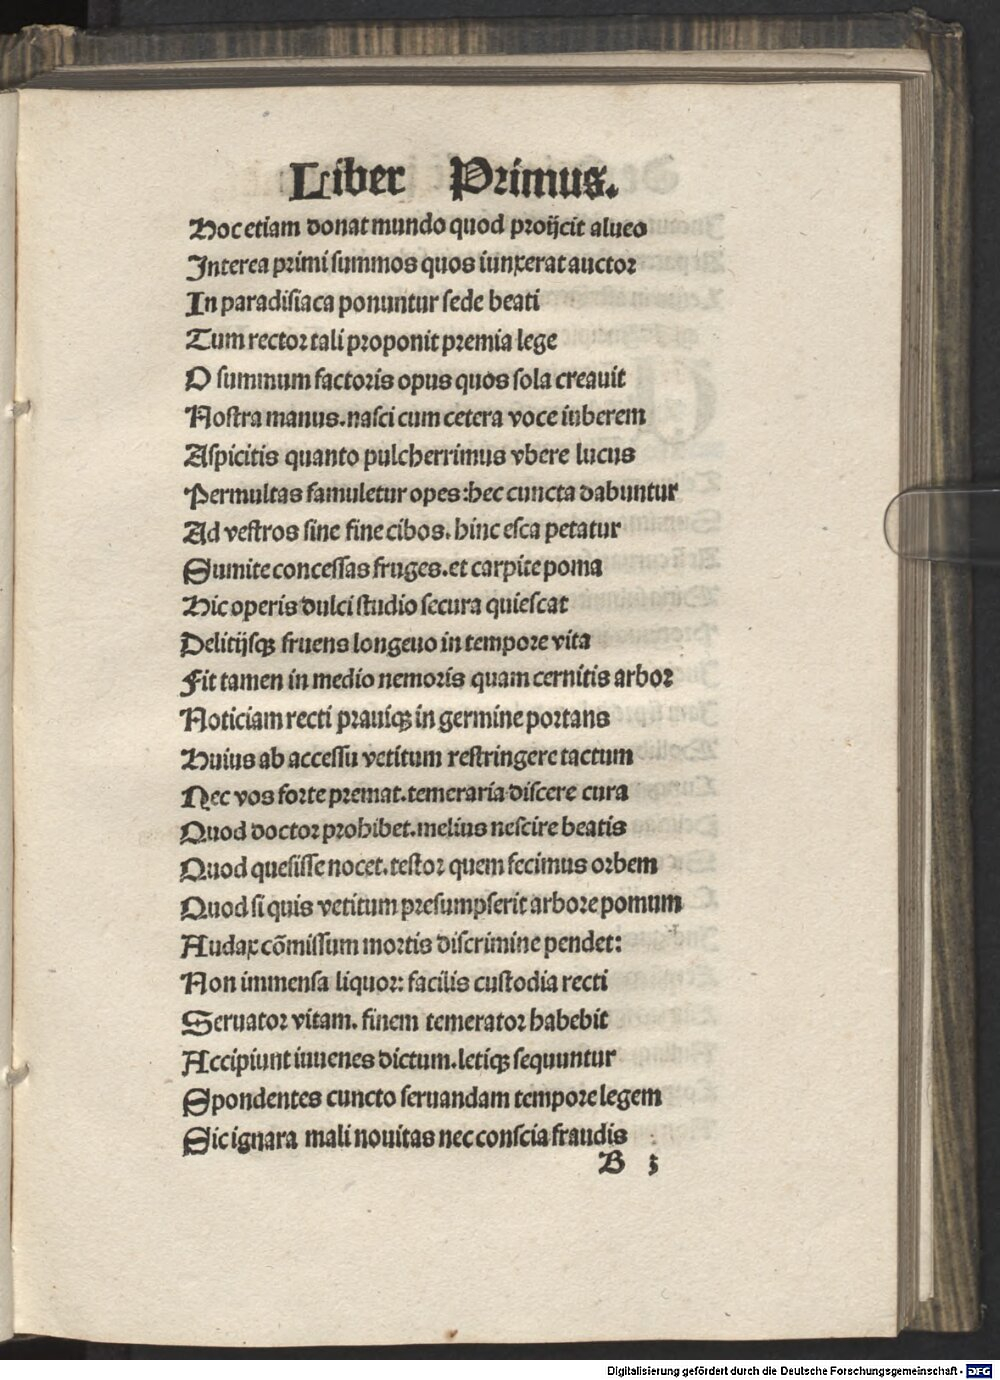 Liber Primus.
Hoc etiam donat mundo quod proijcit alueo
Interea primi summos quos iunxerat auctor
In paradisiaca ponuntur sede beati
Tum rector tali proponit premia lege
O summum factoris opus quos sola creauit
Nostra manus. nasci cum cetera voce iuberem
Aspicitis quanto pulcherrimus vbere lucus
Permultas famuletur opes: hec cuncta dabuntur
Ad vestros sine fine cibos. hinc esca petatur
Sumite concessas fruges. et carpite poma
Hic operis dulci studio secura quiescat
Delitijsqꝫ fruens longeuo in tempore vita
Fit tamen in medio nemoris quam cernitis arbor
Noticiam recti prauiqꝫ in germine portans
Huius ab accessu vetitum restringere tactum
Nec vos forte premat. temeraria discere cura
Quod doctor prohibet. melius nescire beatis
Quod quesisse nocet. testor quem fecimus orbem
Quod si quis vetitum presumpserit arbore pomum
Audax cõmissum mortis discrimine pendet:
Non immensa liquor: facilis custodia recti
Seruator vitam. finem temerator habebit
Accipiunt iuuenes dictum. letiqꝫ sequuntur
Spondentes cuncto seruandam tempore legem
Sic ignara mali nouitas nec conscia fraudis
B 3
Digitalisierung gefördert durch die Deutsche Forschungsgemeinschaft - DFG